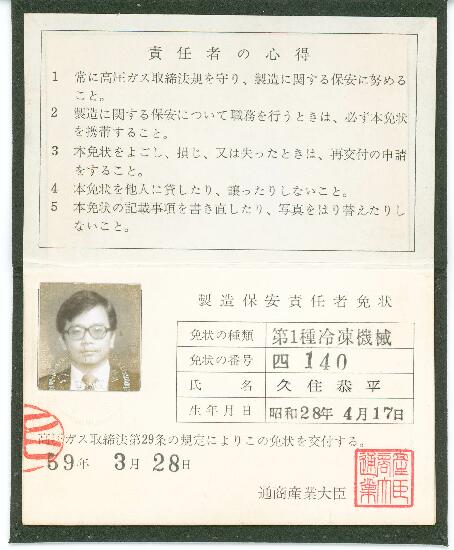 責任者の心得
1 常に高圧ガス取締法規を守り、製造に関する保安に努める
こと。
2 製造に関する保安について職務を行うときは、必ず本免状
を携帯すること。
3 本免状をよごし、損じ、又は失ったときは、再交付の申請
をすること。
4 本免状を他人に貸したり、譲ったりしないこと。
5 本免状の記載事項を書き直したり、写真をはり替えたりし
ないこと。
製造保安責任者免状
免状の種類 第1種冷凍機械
免状の番号 四 140
氏名 久住恭平
生年月日 昭和28年4月17日
高圧ガス取締法第29条の規定によりこの免状を交付する。
59年 3月 28日
通商産業大臣